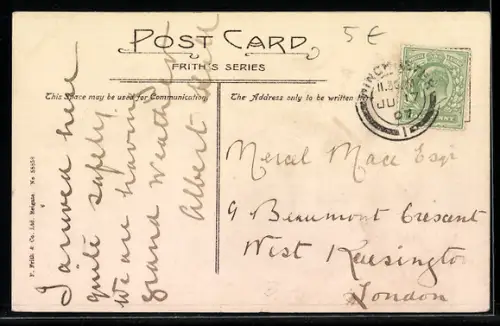 POST CARD
FRITH'S SERIES
This Space may be used for Communication.
The Address only to be written
5€
11.30
JU
07
1
PENNY
I arrived here
quite safely.
We are having
grand weather
Albert
Mace Esqr
9 Beaumont Crescent
West Kensington
London
F. Frith & Co. Ltd. Reigate. No